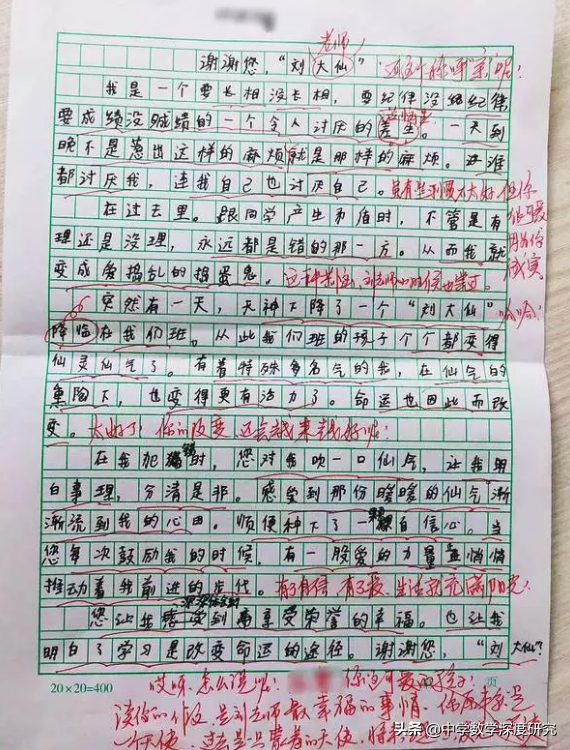 老师
谢谢您，“刘大仙”
我是一个要长相没长相，要纪律没纪律
要成绩没成绩的一个令人讨厌的差生。一天到
晚不是惹出这样的麻烦就是那样的麻烦。谁
都讨厌我，连我自己也讨厌自己。
虽有些刺耳不太好 但你
在过去里。跟同学产生矛盾时，不管是有
很可爱
理还是没理，永远都是错的那一方。从而我就
因为你
诚实
变成爱捣乱的捣蛋鬼。
突然有一天，天神下降了一个“刘大仙”
哈哈！
降临在我们班。从此我们班的孩子个个都变得
仙灵仙气了。有着特殊多名气的我，在仙气的
熏陶下，也变得更有活力了。命运也因此而改
变。太好了！你的改变，还会越来越好呢！
在我犯错时，您对我吹一口仙气，让我明
白事理，分清是非。感受到那份暖暖的仙气渐
渐流到我的心田。顺便种下了一颗自信心。当
您每次鼓励我的时候，有一股爱的力量在悄悄
推动着我前进的步伐。有了自信，有了爱，生活就充满阳光！
您让我感受到离享受荣誉的幸福。也让我
明白了学习是改变命运的途径。谢谢您，“刘大仙”！
20×20=400
哎呀，怎么说呢！ 你这可爱的孩子！
读你的作文 是刘老师最幸福的事情，你原来就是
一个天使，过去是只
头条 @中学数学深度研究